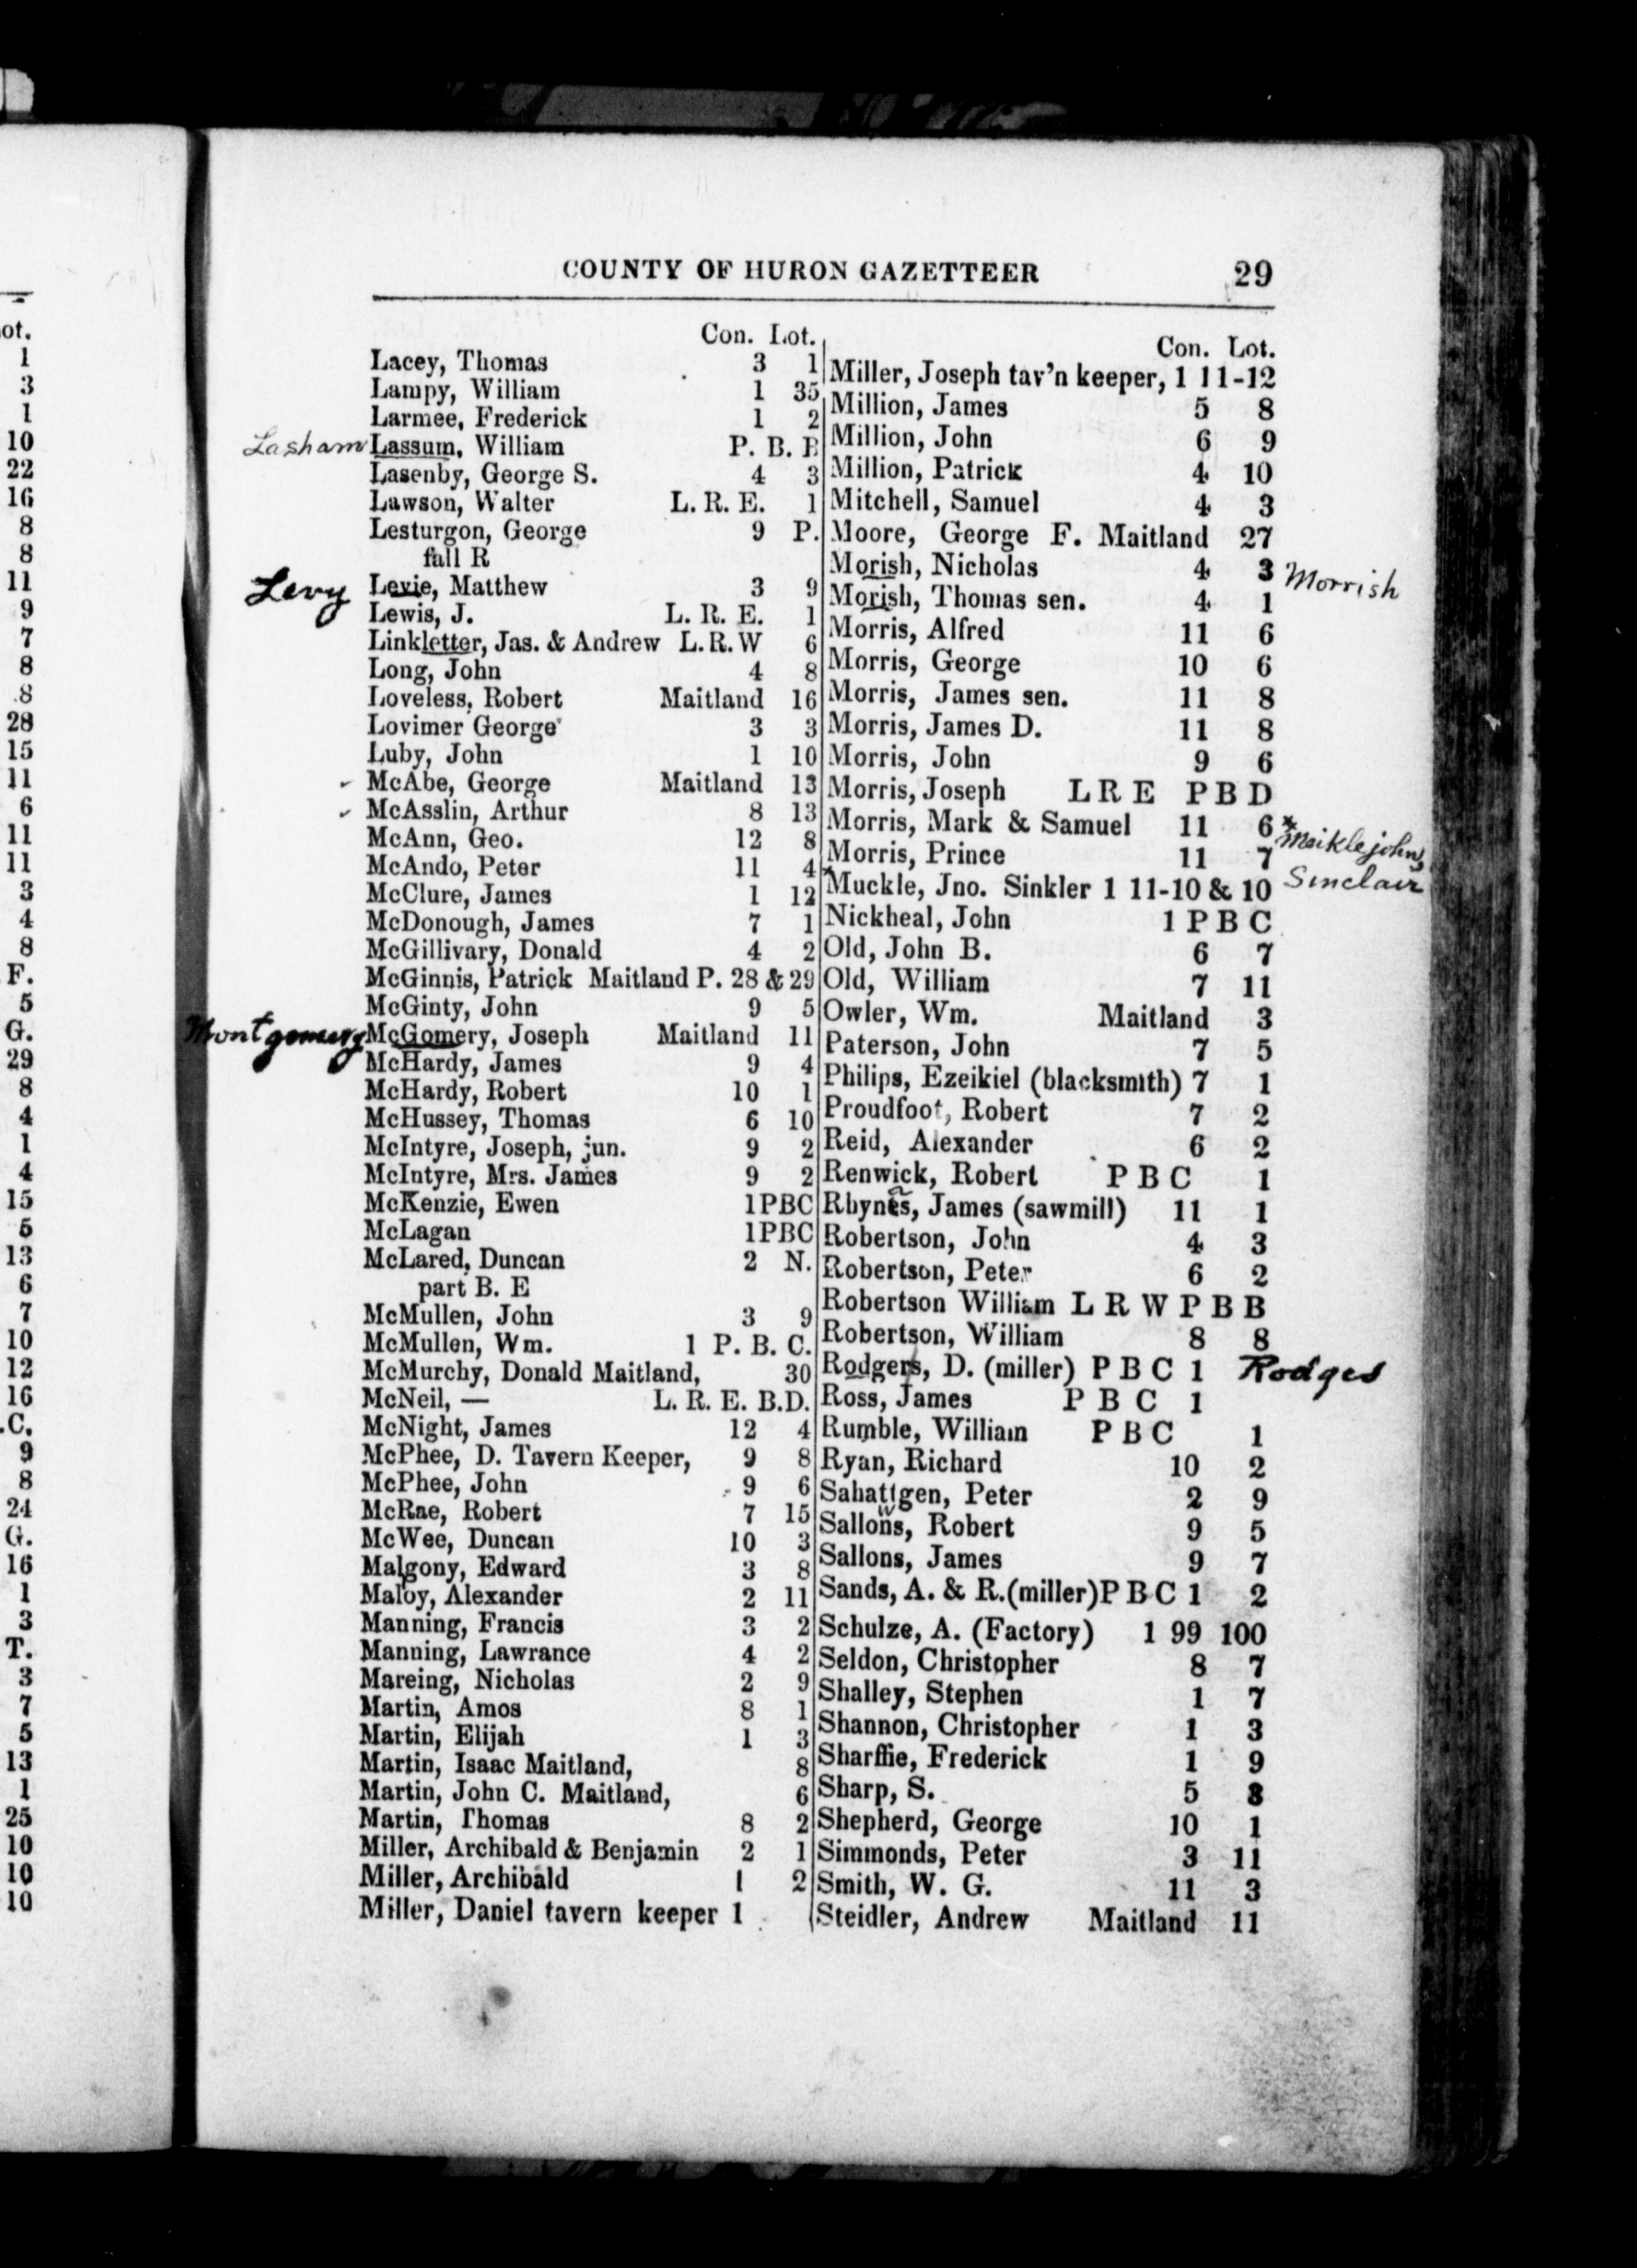 ot.
1
3
1
10
22
16
8
8
11
9
7
8
8
28
15
11
6
11
11
3
4
8
F.
5
G.
29
8
4
1
4
15
5
13
6
7
10
12
16
.C.
9
8
24
G.
16
1
3
T.
3
7
5
13
1
25
10
10
10
COUNTY OF HURON GAZETTEER 29
Con. Lot.
Lacey, Thomas 3 1
Lampy, William 1 35
Larmee, Frederick 1 2
Lasham Lassum, William P. B. B
Lasenby, George S. 4 3
Lawson, Walter L. R. E. 1
Lesturgon, George 9 P.
fall R
Levy Levie, Matthew 3 9
Lewis, J. L. R. E. 1
Linkletter, Jas. & Andrew L. R. W 6
Long, John 4 8
Loveless, Robert Maitland 16
Lovimer George 3 3
Luby, John 1 10
McAbe, George Maitland 13
McAsslin, Arthur 8 13
McAnn, Geo. 12 8
McAndo, Peter 11 4
McClure, James 1 12
McDonough, James 7 1
McGillivary, Donald 4 2
McGinnis, Patrick Maitland P. 28 & 29
McGinty, John 9 5
Montgomery McGomery, Joseph Maitland 11
McHardy, James 9 4
McHardy, Robert 10 1
McHussey, Thomas 6 10
McIntyre, Joseph, jun. 9 2
McIntyre, Mrs. James 9 2
McKenzie, Ewen 1PBC
McLagan 1PBC
McLared, Duncan 2 N.
part B. E
McMullen, John 3 9
McMullen, Wm. 1 P. B. C.
McMurchy, Donald Maitland, 30
McNeil, — L. R. E. B.D.
McNight, James 12 4
McPhee, D. Tavern Keeper, 9 8
McPhee, John 9 6
McRae, Robert 7 15
McWee, Duncan 10 3
Malgony, Edward 3 8
Maloy, Alexander 2 11
Manning, Francis 3 2
Manning, Lawrance 4 2
Mareing, Nicholas 2 9
Martin, Amos 8 1
Martin, Elijah 1 3
Martin, Isaac Maitland, 8
Martin, John C. Maitland, 6
Martin, Thomas 8 2
Miller, Archibald & Benjamin 2 1
Miller, Archibald 1 2
Miller, Daniel tavern keeper 1
Con. Lot.
Miller, Joseph tav'n keeper, 1 11-12
Million, James 5 8
Million, John 6 9
Million, Patrick 4 10
Mitchell, Samuel 4 3
Moore, George F. Maitland 27
Morish, Nicholas 4 3 Morrish
Morish, Thomas sen. 4 1
Morris, Alfred 11 6
Morris, George 10 6
Morris, James sen. 11 8
Morris, James D. 11 8
Morris, John 9 6
Morris, Joseph L R E P B D
Morris, Mark & Samuel 11 6
Morris, Prince 11 7 *Meiklejohn,
*Muckle, Jno. Sinkler 1 11-10 & 10 Sinclair
Nickheal, John 1 P B C
Old, John B. 6 7
Old, William 7 11
Owler, Wm. Maitland 3
Paterson, John 7 5
Philips, Ezeikiel (blacksmith) 7 1
Proudfoot, Robert 7 2
Reid, Alexander 6 2
Renwick, Robert P B C 1
a
Rhynes, James (sawmill) 11 1
Robertson, John 4 3
Robertson, Peter 6 2
Robertson William L R W P B B
Robertson, William 8 8
Rodgers, D. (miller) P B C 1 Rodges
Ross, James P B C 1
Rumble, William P B C 1
Ryan, Richard 10 2
Sahattgen, Peter 2 9
w
Sallons, Robert 9 5
Sallons, James 9 7
Sands, A. & R.(miller)P B C 1 2
Schulze, A. (Factory) 1 99 100
Seldon, Christopher 8 7
Shalley, Stephen 1 7
Shannon, Christopher 1 3
Sharffie, Frederick 1 9
Sharp, S. 5 8
Shepherd, George 10 1
Simmonds, Peter 3 11
Smith, W. G. 11 3
Steidler, Andrew Maitland 11